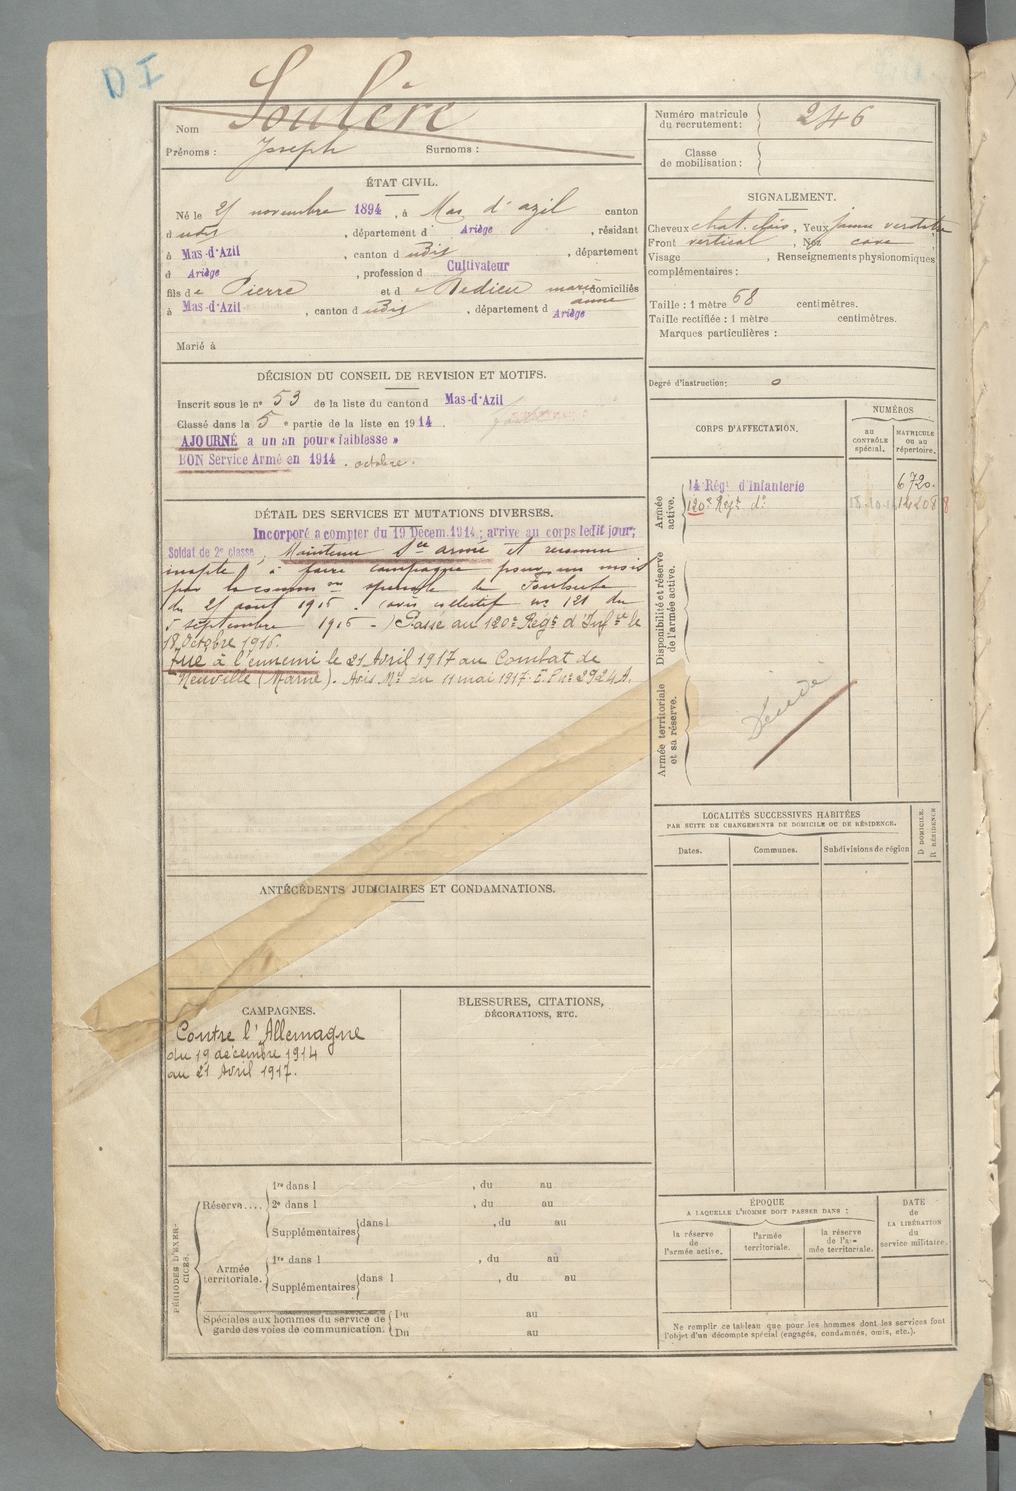 D I
Nom Soulère
Prénoms : Joseph Surnoms :
Numéro matricule du recrutement : 246
Classe de mobilisation :
ÉTAT CIVIL.
Né le novembre 1894, à Mas d'azil canton
d udit, département d Ariège, résidant
à Mas-d'Azil, canton d udit, département
d Ariège, profession d Cultivateur
fils de Pierre et d e Dedieu marie anne domiciliés
à Mas-d'Azil, canton d udit, département d Ariège
Marié à
SIGNALEMENT.
Cheveux chat. clair, Yeux jaune verdatre
Front vertical, Nez cave
Visage , Renseignements physionomiques
complémentaires :
Taille : 1 mètre 68 centimètres.
Taille rectifiée : 1 mètre centimètres.
Marques particulières :
Degré d'instruction: 0
DÉCISION DU CONSEIL DE REVISION ET MOTIFS.
Inscrit sous le n° 53 de la liste du canton d Mas-d'Azil
Classé dans la 5 e partie de la liste en 1914.
AJOURNÉ a un an pour « faiblesse »
BON Service Armé en 1914. octobre.
DÉTAIL DES SERVICES ET MUTATIONS DIVERSES.
Incorporé a compter du 19 Décem. 1914; arrivé au corps ledit jour;
Soldat de 2e classe, Maintenu Sce armé et reconnu
inapte à faire campagne pour un mois
par la common spéciale de Toulouse
du août 1915. (avis collectif no 121 du
5 septembre 1915 -) Passé au 120e Régt d'Infie le
18 Octobre 1916.
Tué à l'ennemi le 21 Avril 1917 au Combat de
Neuville (Marne). Avis Mel du 11 mai 1917. E.P. no 2924A.
CORPS D'AFFECTATION.
NUMÉROS
au CONTRÔLE spécial.
MATRICULE ou au répertoire.
Armée active.
14 Régt d'Infanterie 6720.
120e Régt do
Disponibilité et réserve de l'armée active.
Armée territoriale et sa réserve.
Décédé
LOCALITÉS SUCCESSIVES HABITÉES
PAR SUITE DE CHANGEMENTS DE DOMICILE OU DE RÉSIDENCE.
Dates. Communes. Subdivisions de région D DOMICILE. R RÉSIDENCE
ANTÉCÉDENTS JUDICIAIRES ET CONDAMNATIONS.
CAMPAGNES.
Contre l'Allemagne
du 19 décembre 1914
au 21 Avril 1917.
BLESSURES, CITATIONS,
DÉCORATIONS, ETC.
PÉRIODES D'EXERCICES.
Réserve....
1re dans l , du au
2e dans l , du au
Supplémentaires dans l , du au
Armée territoriale.
1re dans l , du au
Supplémentaires dans l , du au
Spéciales aux hommes du service de
garde des voies de communication.
Du au
Du au
ÉPOQUE
A LAQUELLE L'HOMME DOIT PASSER DANS :
la réserve de l'armée active.
l'armée territoriale.
la réserve de l'armée territoriale.
DATE DE LA LIBÉRATION du service militaire.
Ne remplir ce tableau que pour les hommes dont les services font
l'objet d'un décompte spécial (engagés, condamnés, omis, etc.).